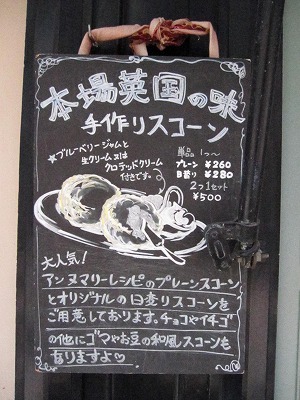 本場英国の味
手作りスコーン
★ブルーベリージャムと
生クリーム又は
クロテッドクリーム
付きです。
単品 1つ〜
プレーン ¥260
日替り ¥280
2つ1セット
¥500
大人気!
アンヌマリーレシピのプレーンスコーン
とオリジナルの日変りスコーンを
ご用意しております。チョコやイチゴ
の他にゴマやお豆の和風スコーンも
ありますよ♡